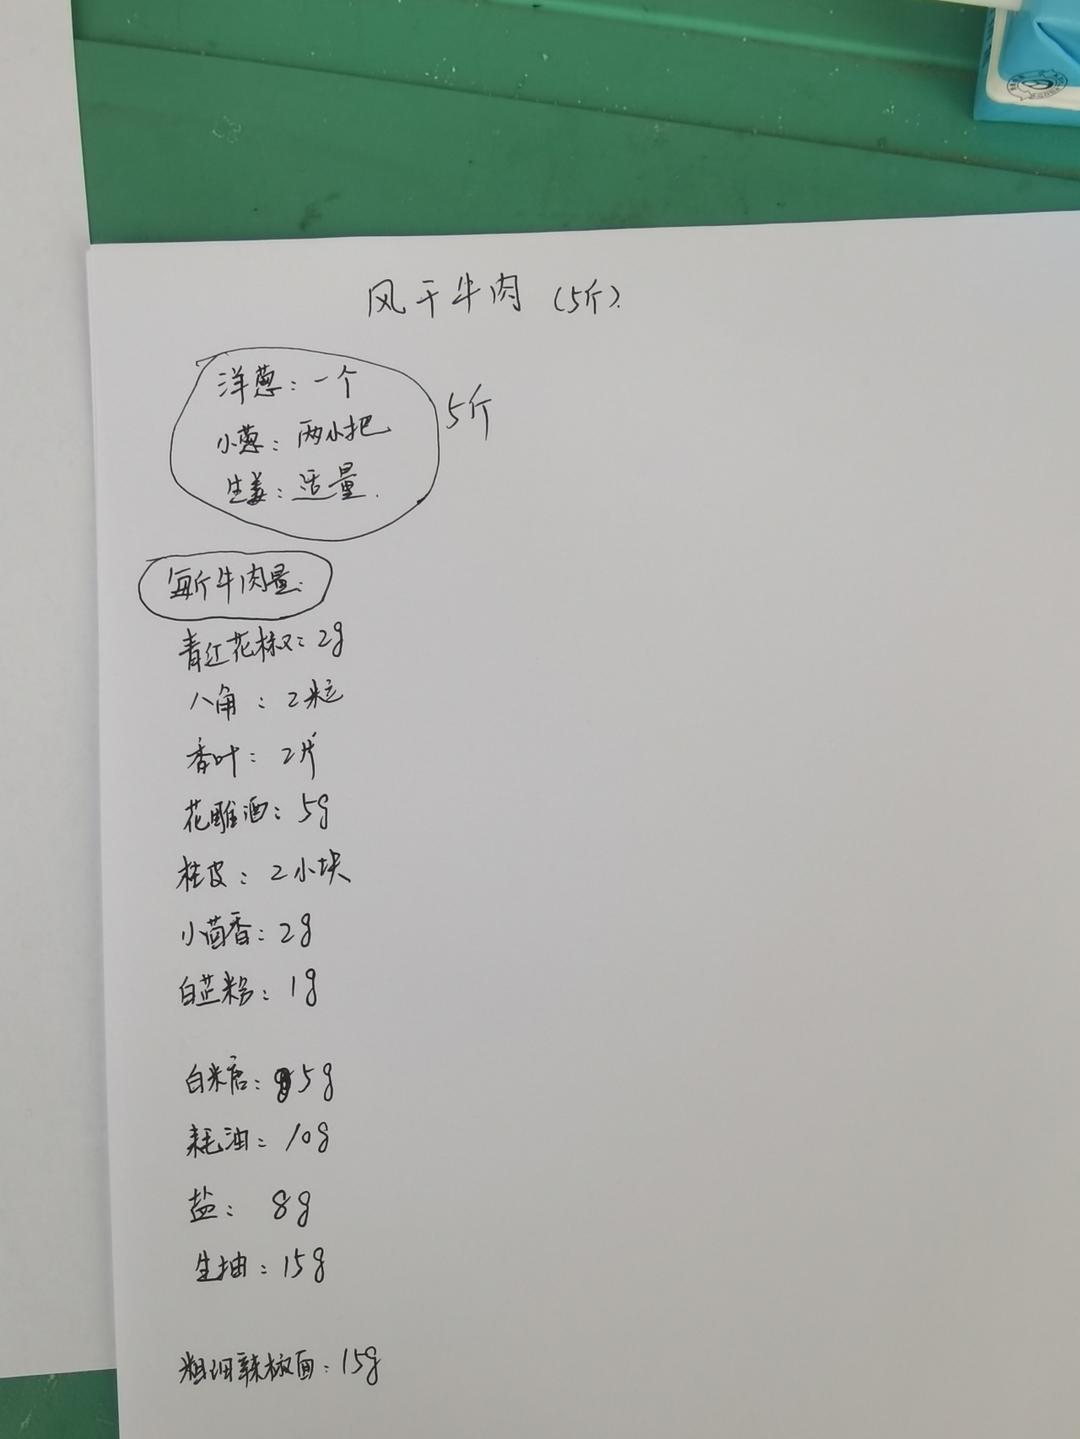 风干牛肉（5斤）.
洋葱：一个
小葱：两小把
生姜：适量.
5斤
每斤牛肉量：
青红花椒：2g
八角：2粒
香叶：2片
花雕酒：5g
桂皮：2小块
小茴香：2g
白芷粉：1g
白糖：5g
耗油：10g
盐：8g
生抽：15g
粗细辣椒面：15g